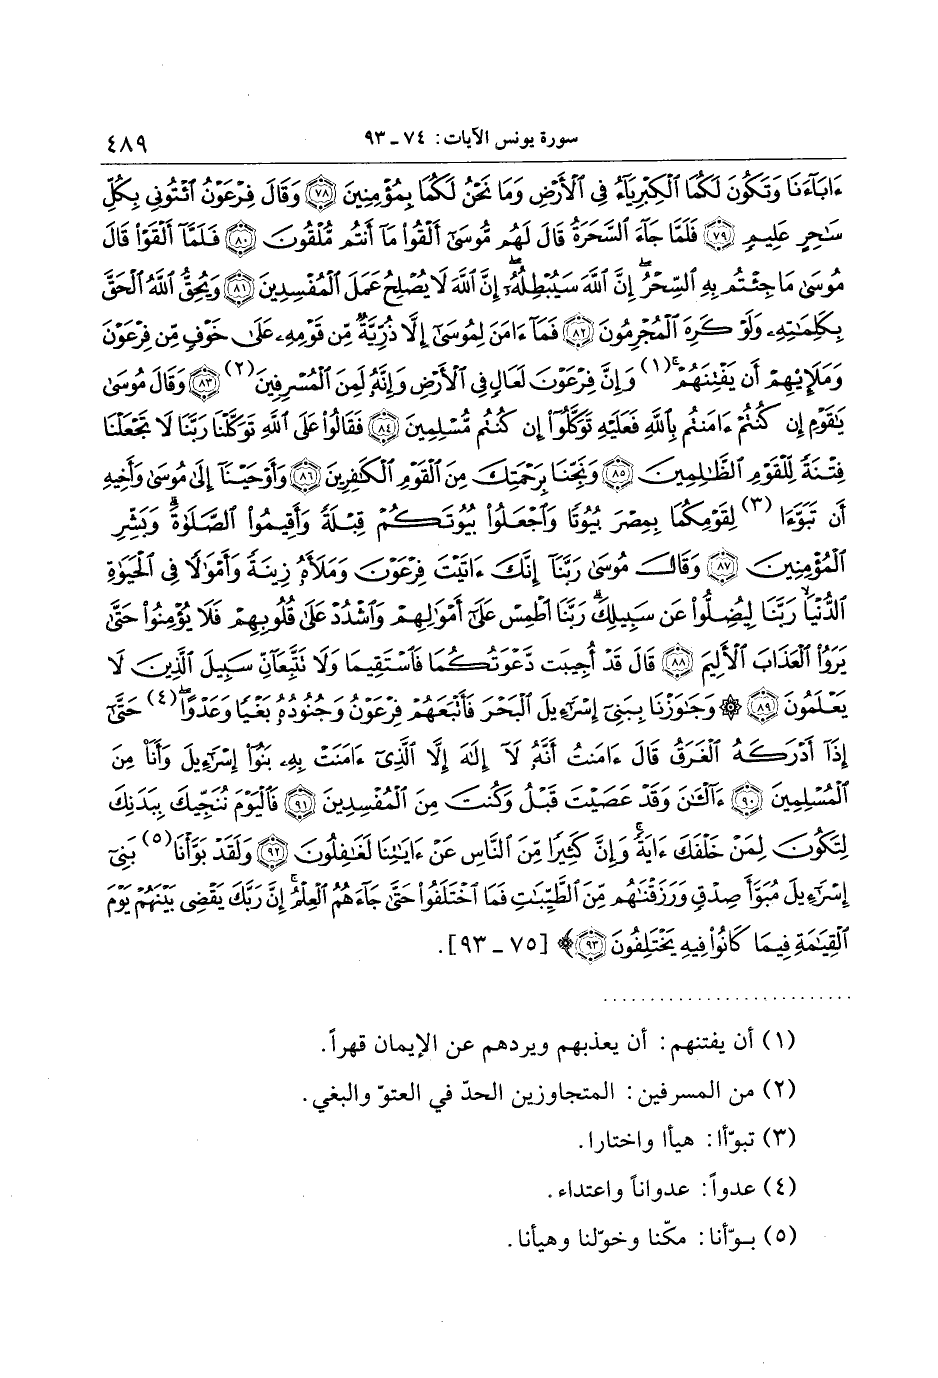 سورة يونس الآيات: ٧٤ ـ ٩٣ ٤٨٩
ءَابَآءَنَا وَتَكُونَ لَكُمَا ٱلْكِبْرِيَآءُ فِى ٱلْأَرْضِ وَمَا نَحْنُ لَكُمَا بِمُؤْمِنِينَ ﴿٧٨﴾ وَقَالَ فِرْعَوْنُ ٱئْتُونِى بِكُلِّ
سَٰحِرٍ عَلِيمٍ ﴿٧٩﴾ فَلَمَّا جَآءَ ٱلسَّحَرَةُ قَالَ لَهُم مُّوسَىٰٓ أَلْقُوا۟ مَآ أَنتُم مُّلْقُونَ ﴿٨٠﴾ فَلَمَّآ أَلْقَوْا۟ قَالَ
مُوسَىٰ مَا جِئْتُم بِهِ ٱلسِّحْرُ ۖ إِنَّ ٱللَّهَ سَيُبْطِلُهُۥٓ ۖ إِنَّ ٱللَّهَ لَا يُصْلِحُ عَمَلَ ٱلْمُفْسِدِينَ ﴿٨١﴾ وَيُحِقُّ ٱللَّهُ ٱلْحَقَّ
بِكَلِمَٰتِهِۦ وَلَوْ كَرِهَ ٱلْمُجْرِمُونَ ﴿٨٢﴾ فَمَآ ءَامَنَ لِمُوسَىٰٓ إِلَّا ذُرِّيَّةٌ مِّن قَوْمِهِۦ عَلَىٰ خَوْفٍ مِّن فِرْعَوْنَ
وَمَلَإِي۟هِمْ أَن يَفْتِنَهُمْ ۚ (١) وَإِنَّ فِرْعَوْنَ لَعَالٍ فِى ٱلْأَرْضِ وَإِنَّهُۥ لَمِنَ ٱلْمُسْرِفِينَ (٢) ﴿٨٣﴾ وَقَالَ مُوسَىٰ
يَٰقَوْمِ إِن كُنتُمْ ءَامَنتُم بِٱللَّهِ فَعَلَيْهِ تَوَكَّلُوٓا۟ إِن كُنتُم مُّسْلِمِينَ ﴿٨٤﴾ فَقَالُوا۟ عَلَى ٱللَّهِ تَوَكَّلْنَا رَبَّنَا لَا تَجْعَلْنَا
فِتْنَةً لِّلْقَوْمِ ٱلظَّٰلِمِينَ ﴿٨٥﴾ وَنَجِّنَا بِرَحْمَتِكَ مِنَ ٱلْقَوْمِ ٱلْكَٰفِرِينَ ﴿٨٦﴾ وَأَوْحَيْنَآ إِلَىٰ مُوسَىٰ وَأَخِيهِ
أَن تَبَوَّءَا (٣) لِقَوْمِكُمَا بِمِصْرَ بُيُوتًا وَٱجْعَلُوا۟ بُيُوتَكُمْ قِبْلَةً وَأَقِيمُوا۟ ٱلصَّلَوٰةَ ۗ وَبَشِّرِ
ٱلْمُؤْمِنِينَ ﴿٨٧﴾ وَقَالَ مُوسَىٰ رَبَّنَآ إِنَّكَ ءَاتَيْتَ فِرْعَوْنَ وَمَلَأَهُۥ زِينَةً وَأَمْوَٰلًا فِى ٱلْحَيَوٰةِ
ٱلدُّنْيَا رَبَّنَا لِيُضِلُّوا۟ عَن سَبِيلِكَ ۖ رَبَّنَا ٱطْمِسْ عَلَىٰٓ أَمْوَٰلِهِمْ وَٱشْدُدْ عَلَىٰ قُلُوبِهِمْ فَلَا يُؤْمِنُوا۟ حَتَّىٰ
يَرَوُا۟ ٱلْعَذَابَ ٱلْأَلِيمَ ﴿٨٨﴾ قَالَ قَدْ أُجِيبَت دَّعْوَتُكُمَا فَٱسْتَقِيمَا وَلَا تَتَّبِعَآنِّ سَبِيلَ ٱلَّذِينَ لَا
يَعْلَمُونَ ﴿٨٩﴾ ۞ وَجَٰوَزْنَا بِبَنِىٓ إِسْرَٰٓءِيلَ ٱلْبَحْرَ فَأَتْبَعَهُمْ فِرْعَوْنُ وَجُنُودُهُۥ بَغْيًا وَعَدْوًا ۖ (٤) حَتَّىٰٓ
إِذَآ أَدْرَكَهُ ٱلْغَرَقُ قَالَ ءَامَنتُ أَنَّهُۥ لَآ إِلَٰهَ إِلَّا ٱلَّذِىٓ ءَامَنَتْ بِهِۦ بَنُوٓا۟ إِسْرَٰٓءِيلَ وَأَنَا۠ مِنَ
ٱلْمُسْلِمِينَ ﴿٩٠﴾ ءَآلْـَٰٔنَ وَقَدْ عَصَيْتَ قَبْلُ وَكُنتَ مِنَ ٱلْمُفْسِدِينَ ﴿٩١﴾ فَٱلْيَوْمَ نُنَجِّيكَ بِبَدَنِكَ
لِتَكُونَ لِمَنْ خَلْفَكَ ءَايَةً ۚ وَإِنَّ كَثِيرًا مِّنَ ٱلنَّاسِ عَنْ ءَايَٰتِنَا لَغَٰفِلُونَ ﴿٩٢﴾ وَلَقَدْ بَوَّأْنَا (٥) بَنِىٓ
إِسْرَٰٓءِيلَ مُبَوَّأَ صِدْقٍ وَرَزَقْنَٰهُم مِّنَ ٱلطَّيِّبَٰتِ فَمَا ٱخْتَلَفُوا۟ حَتَّىٰ جَآءَهُمُ ٱلْعِلْمُ ۚ إِنَّ رَبَّكَ يَقْضِى بَيْنَهُمْ يَوْمَ
ٱلْقِيَٰمَةِ فِيمَا كَانُوا۟ فِيهِ يَخْتَلِفُونَ ﴿٩٣﴾ ﴾ [٧٥ ـ ٩٣].
(١) أن يفتنهم: أن يعذبهم ويردهم عن الإيمان قهراً.
(٢) من المسرفين: المتجاوزين الحدّ في العتوّ والبغي.
(٣) تبوّأا: هيأا واختارا.
(٤) عدواً: عدواناً واعتداء.
(٥) بوّأنا: مكّنا وخوّلنا وهيأنا.